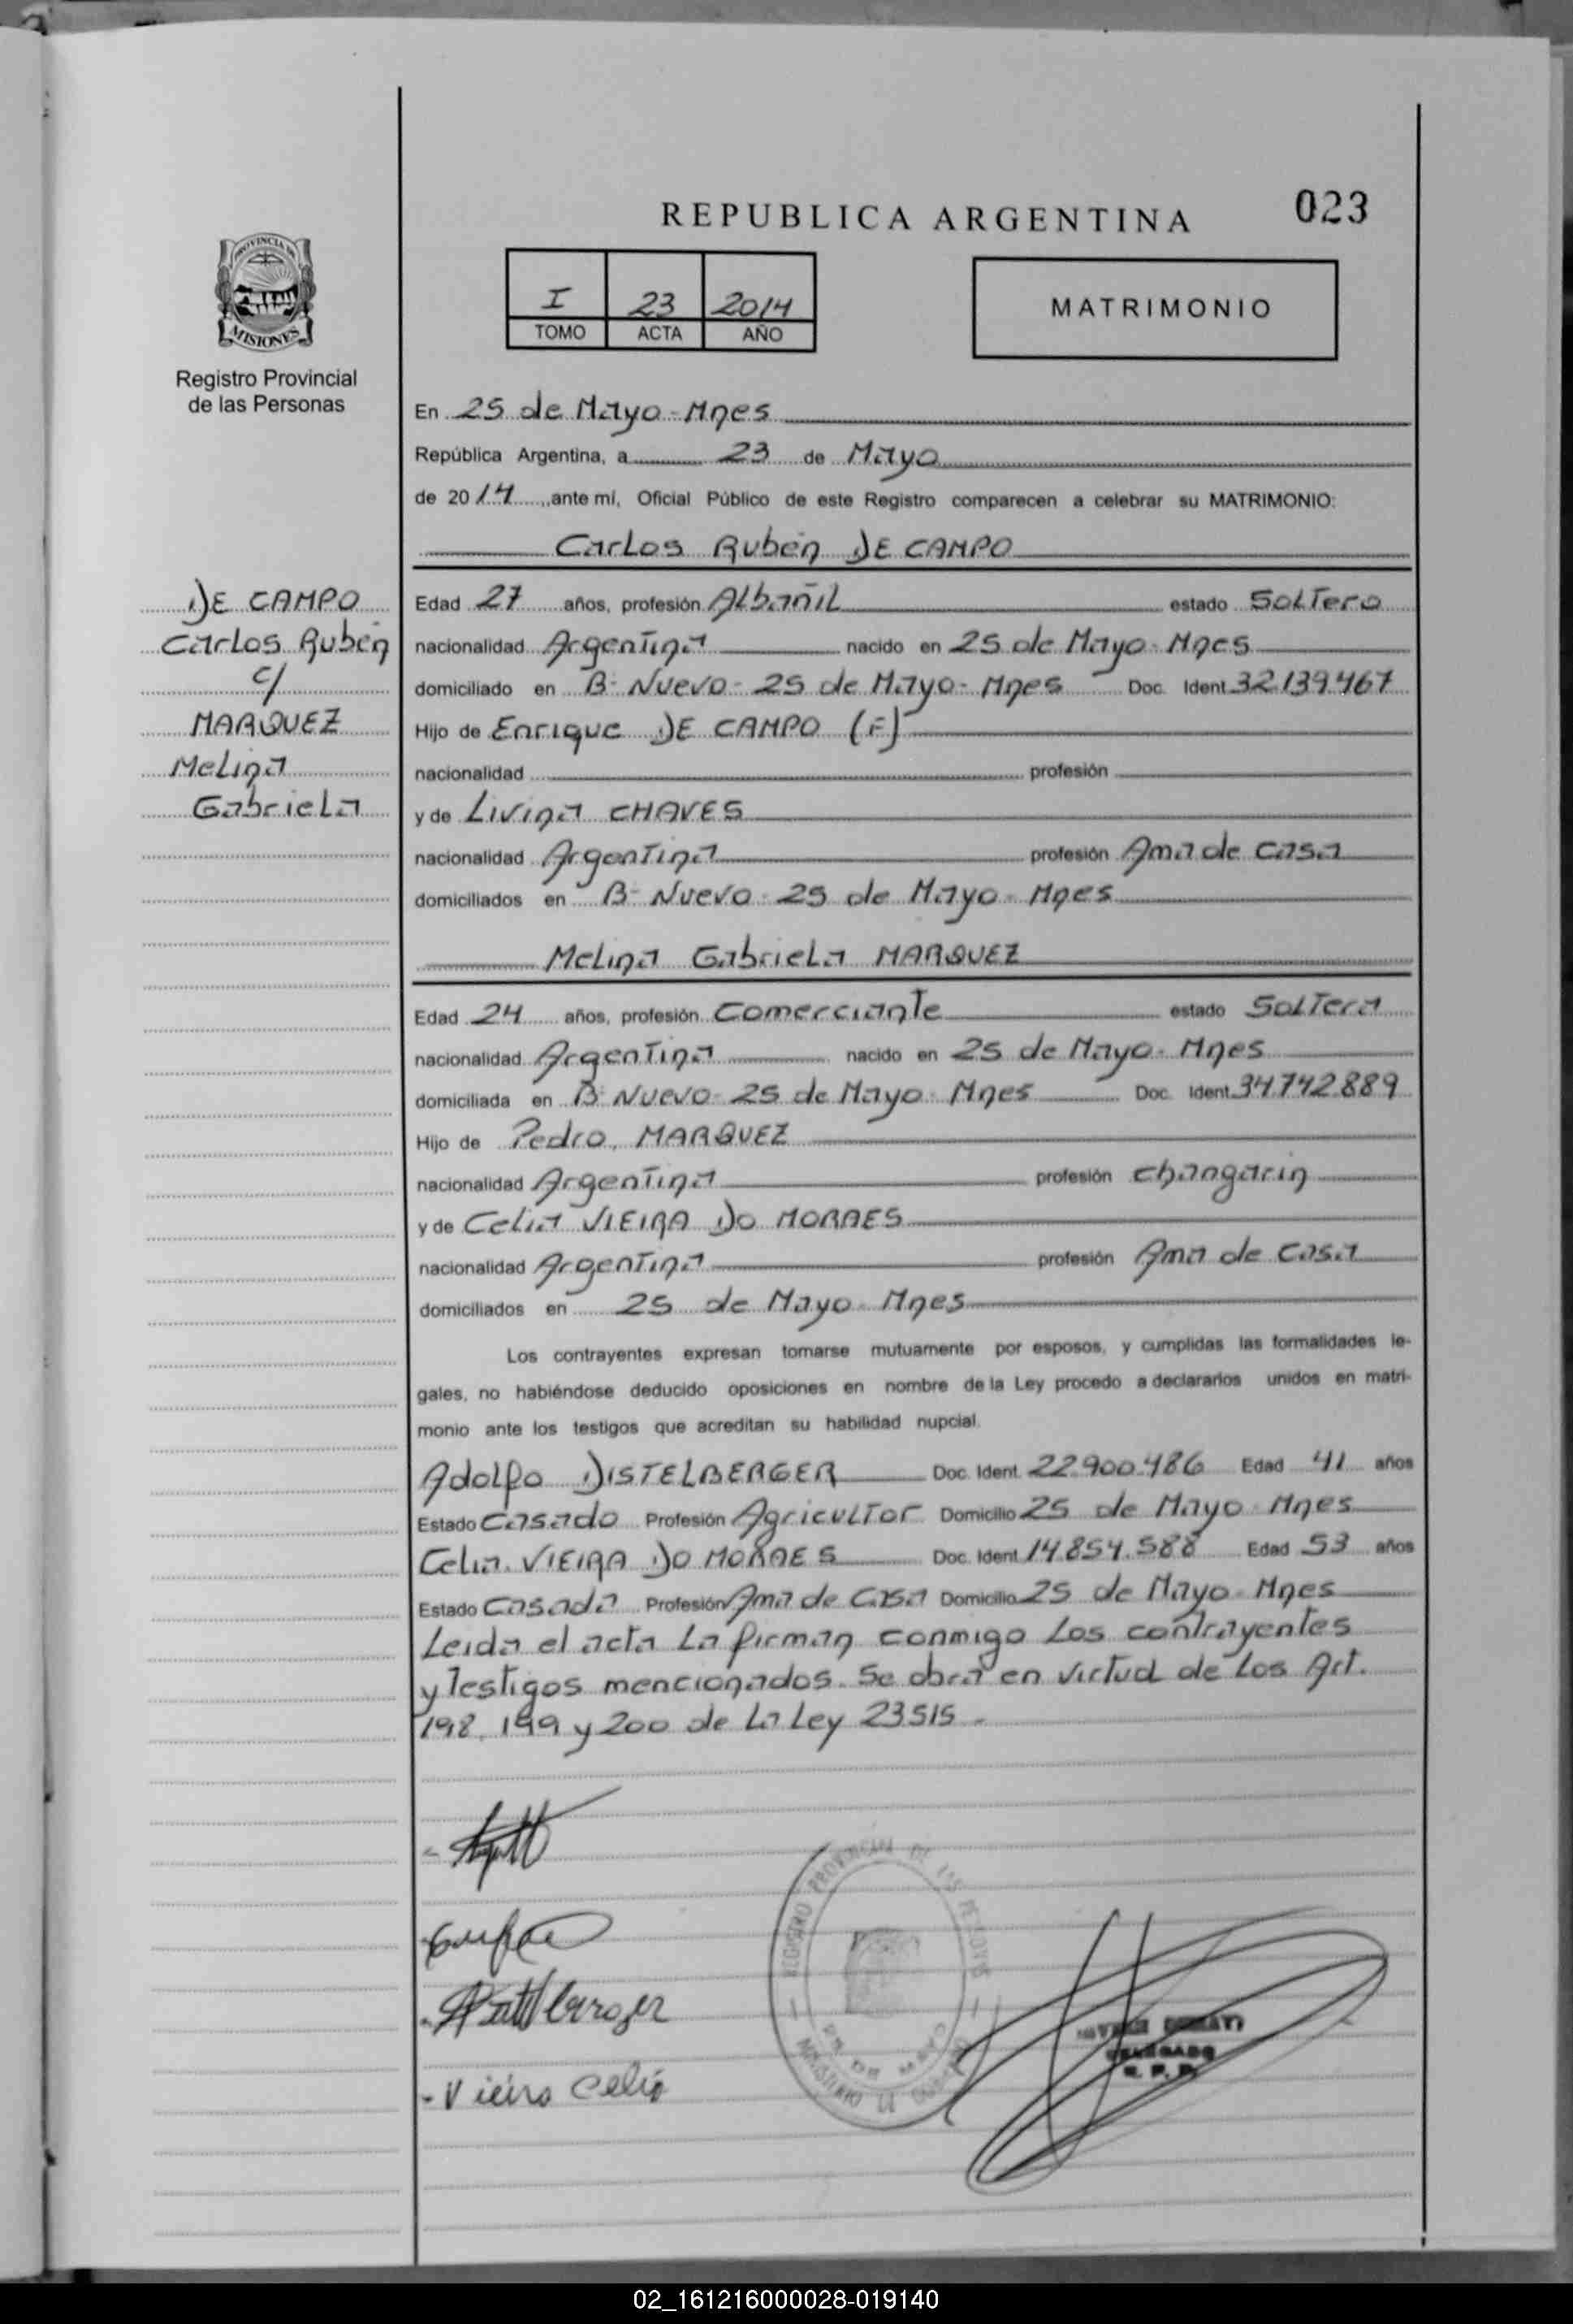 023
REPUBLICA ARGENTINA
PROVINCIA DE
MISIONES
Registro Provincial
de las Personas
I 23 2014
TOMO ACTA AÑO
MATRIMONIO
En 25 de Mayo - Mnes
República Argentina, a 23 de Mayo
de 2014, ante mí, Oficial Público de este Registro comparecen a celebrar su MATRIMONIO:
Carlos Rubén DE CAMPO
DE CAMPO
Carlos Rubén
c/
MARQUEZ
Melina
Gabriela
Edad 27 años, profesión Albañil estado Soltero
nacionalidad Argentina nacido en 25 de Mayo - Mnes
domiciliado en B- Nuevo - 25 de Mayo - Mnes Doc. Ident. 32.139.467
Hijo de Enrique DE CAMPO (F)
nacionalidad profesión
y de Livina CHAVES
nacionalidad Argentina profesión Ama de casa
domiciliados en B- Nuevo - 25 de Mayo - Mnes
Melina Gabriela MARQUEZ
Edad 24 años, profesión Comerciante estado Soltera
nacionalidad Argentina nacido en 25 de Mayo - Mnes
domiciliada en B- Nuevo - 25 de Mayo - Mnes Doc. Ident. 34.742.889
Hijo de Pedro, MARQUEZ
nacionalidad Argentina profesión changarin
y de Celia VIEIRA DO MORAES
nacionalidad Argentina profesión Ama de Casa
domiciliados en 25 de Mayo - Mnes
Los contrayentes expresan tomarse mutuamente por esposos, y cumplidas las formalidades le-
gales, no habiéndose deducido oposiciones en nombre de la Ley procedo a declararlos unidos en matri-
monio ante los testigos que acreditan su habilidad nupcial.
Adolfo DISTELBERGER Doc. Ident. 22.900.486 Edad 41 años
Estado Casado Profesión Agricultor Domicilio 25 de Mayo - Mnes
Celia VIEIRA DO MORAES Doc. Ident. 14.854.588 Edad 53 años
Estado Casada Profesión Ama de Casa Domicilio 25 de Mayo - Mnes
Leida el acta La firman conmigo Los contrayentes
y Testigos mencionados. Se obra en virtud de Los Art.
198, 199 y 200 de La Ley 23515 -
REGISTRO PROVINCIAL DE LAS PERSONAS
25 DE MAYO
MINISTERIO DE GOBIERNO
DELEGADO
R. P. P.
- Vieira Celia
02_161216000028-019140